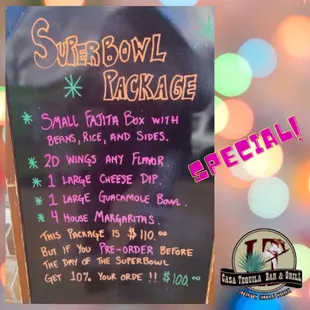 SUPERBOWL
PACKAGE
* SMALL FAJITA BOX WITH
BEANS, RICE, AND SIDES.
* 20 WINGS ANY FLAVOR
* 1 LARGE CHEESE DIP
* 1 LARGE GUACAMOLE BOWL.
* 4 HOUSE MARGARITAS.
THIS PACKAGE IS $110.00
BUT IF YOU PRE-ORDER BEFORE
THE DAY OF THE SUPERBOWL
GET 10% YOUR ORDE !! $100.00
SPECIAL!
LT
CASA TEQUILA BAR & GRILL